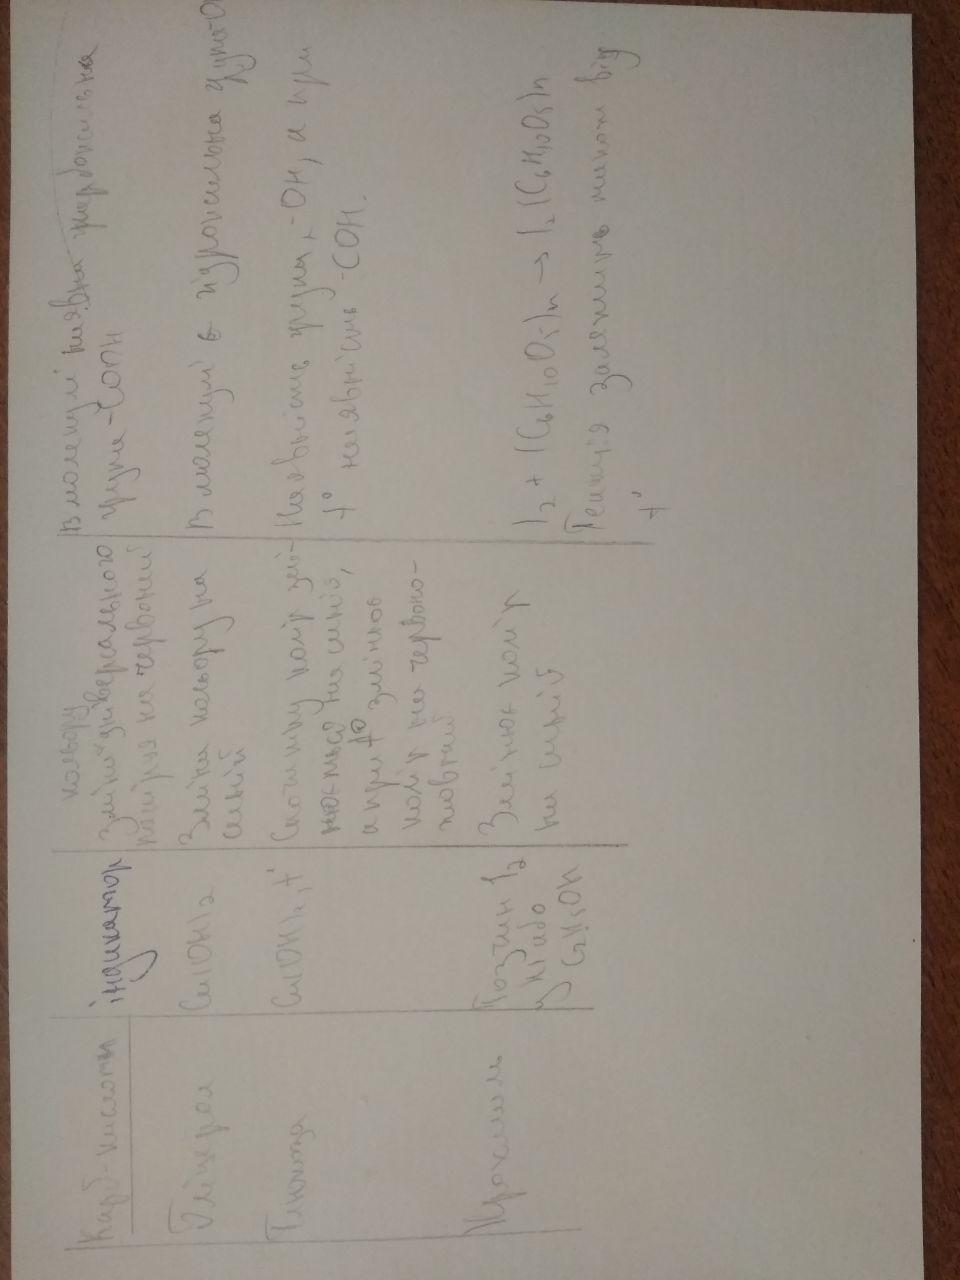 Карб-кислоти
індикатор
кольору
Зміни універсального
папіря на червоний
В молекулі наявна карбоксильна
група -COOH
Гліцерол
Cu(OH)2
Зміна кольору на
синій
В молекулі є гідроксильна група-O
Глюкоза
Cu(OH)2, t°
Спочатку колір змі-
нюється на синій,
а при t° змінює
колір на червоно-
Наявність групи -OH, а при
t° наявність -COH.
Крохмаль
Розчин I2
у KI або
C2H5OH
Змінює колір
на синій
I2 + (C6H10O5)n → I2(C6H10O5)n
Реакція залежить також від
t°